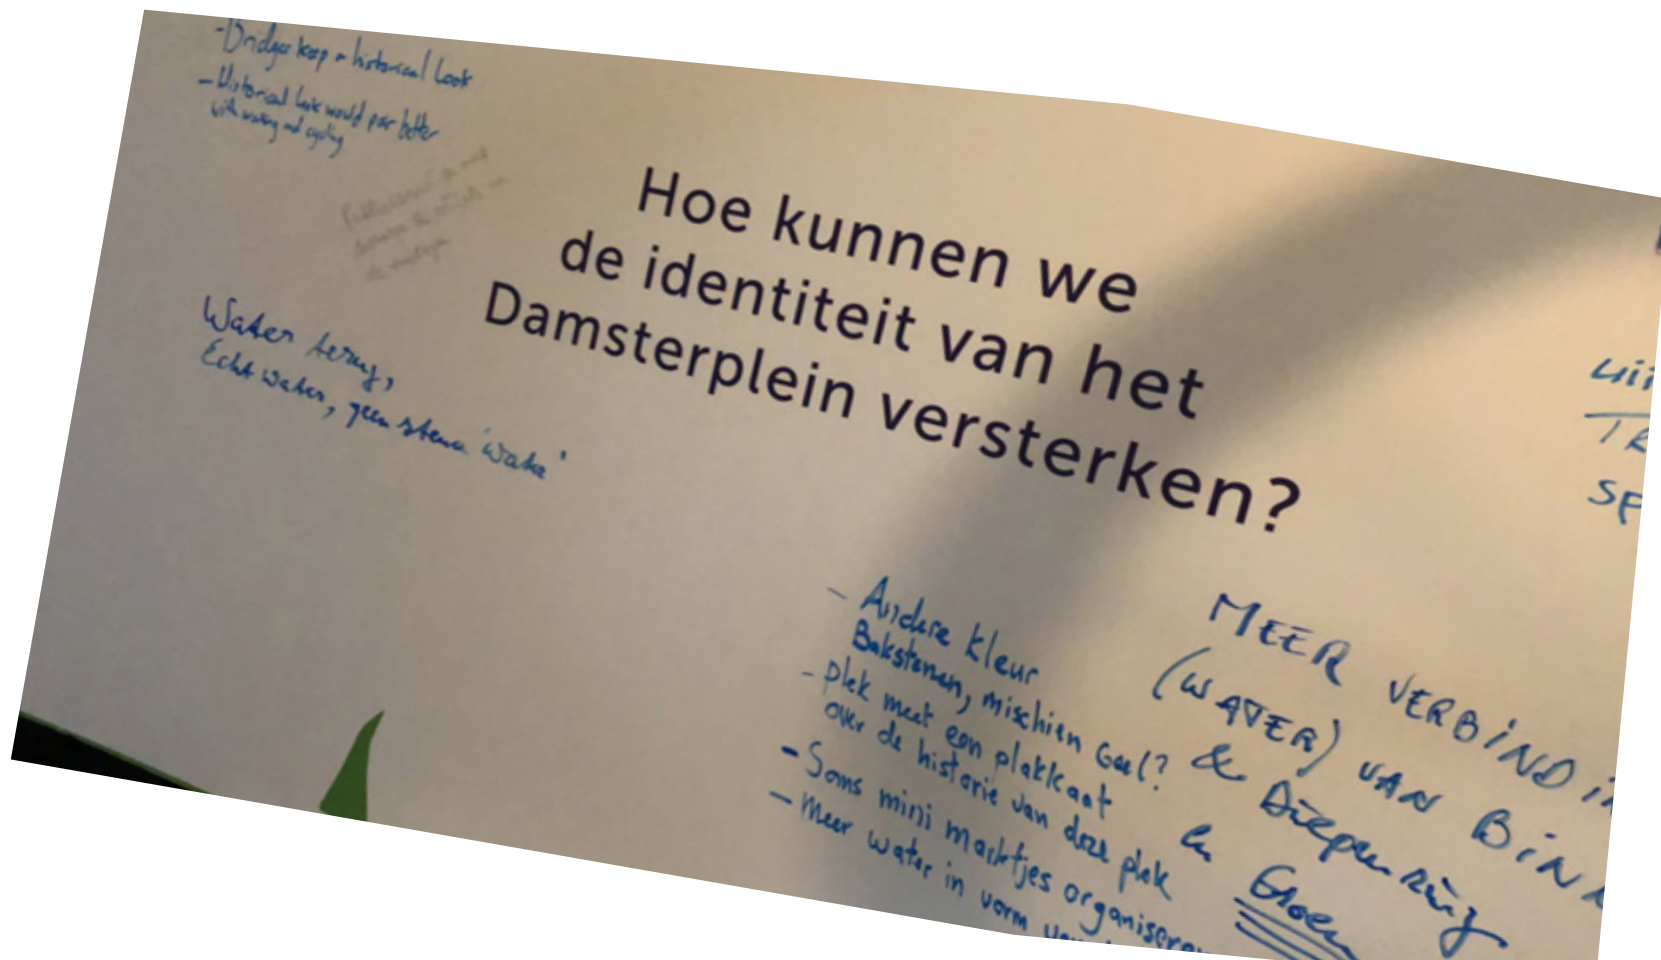 - Bridges keep a historical look
- Historical look would pair better
with walking and cycling
Hoe kunnen we
de identiteit van het
Damsterplein versterken?
Water terug,
Echt water, geen stenen 'water'
- Andere kleur
Bakstenen, mischien Geel?
- plek meet een plakkaat
over de historie van deze plek
- Soms mini marktjes organiseren
- Meer water in vorm van
MEER VERBINDI
(WATER) VAN BINN
& Diepenring
en Groen
Uii
TR
SF